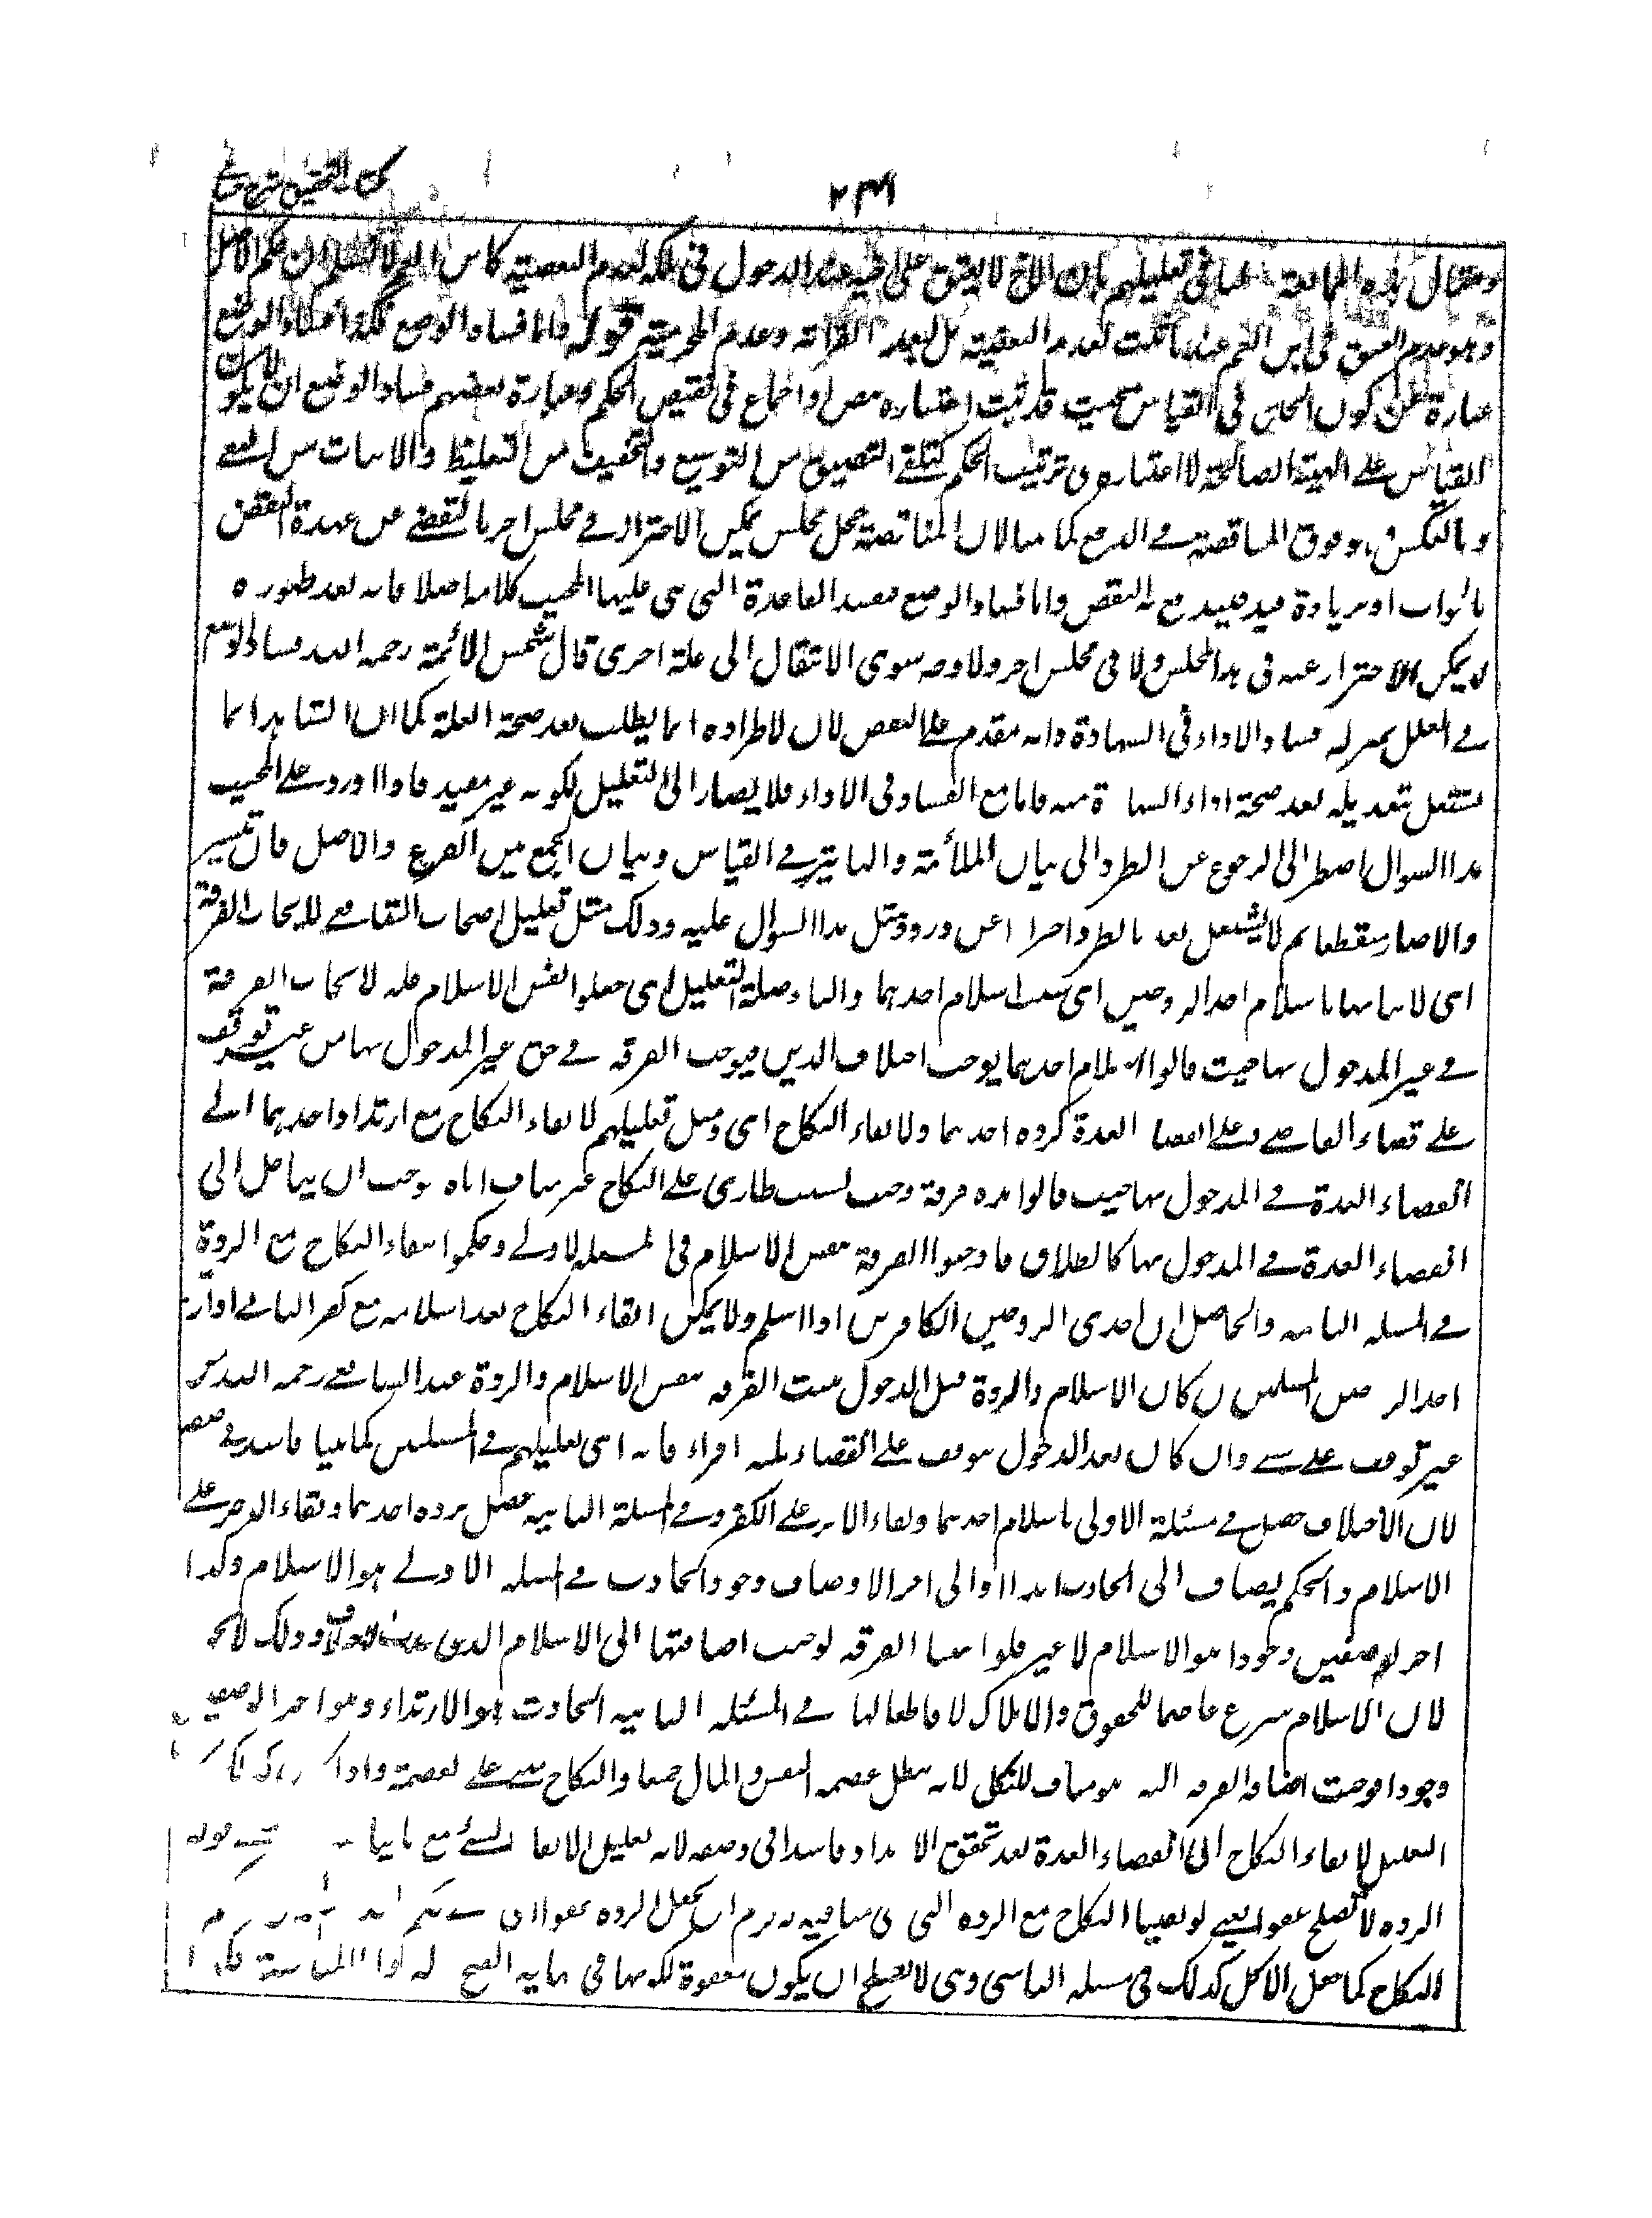 كتاب التحقيق شرح
٢٣٦
ومثال هذه الممانعة في تعليلهم بان الاخ لا يعتق على اخيه عند الدخول في ملكه لعدم البعضية كابن العم لا نسلم ان حكم الاصل
وهو عدم العتق في ابن العم ثابت لعدم البعضية بل لبعد القرابة وعدم المحرمية قوله واما فساد الوضع فساد الوضع
عبارة عن كون الجامع في القياس بحيث قد ثبت اعتباره بنص او اجماع في نقيض الحكم وعبارة بعضهم فساد الوضع ان لا يكون
القياس على الهيئة الصالحة لاعتباره في ترتيب الحكم كتلقي التضييق من التوسيع والتخفيف من التغليظ والاثبات من النفي
وبالعكس وهو فوق المناقضة في الدفع كما لان المناقضة خجل مجلس يمكن الاحتراز في مجلس اخر بالتفصي عن عهدة النقض
بالجواب او بزيادة قيد يندفع به النقض واما فساد الوضع فيفسد القاعدة التي بنى عليها المجيب كلامه اصلا فانه بعد ظهوره
لا يمكن الاحتراز عنه في هذا المجلس ولا في مجلس اخر ولا وجه سوى الانتقال الى علة اخرى قال شمس الائمة رحمه الله فساد الوضع
في العلل بمنزلة فساد الاداء في الشهادة وانه مقدم على النقض لان الاطراد انما يطلب بعد صحة العلة كما ان الشاهد انما
يشتغل بتعديله بعد صحة اداء الشهادة منه فاما مع الفساد في الاداء فلا يصار الى التعديل لكونه غير مفيد فاذا ورد على المجيب
هذا السوال اضطر الى الرجوع عن الطرد الى بيان الملائمة والتاثير في القياس وبيان الجمع بين الفرع والاصل فان تيسر
والا صار منقطعا ثم لا يشتغل بعد بالطرد احترازا عن ورود مثل هذا السوال عليه وذلك مثل تعليل اصحاب الشافعي لايجاب الفرقة
اي لاثباتها باسلام احد الزوجين اي بسبب اسلام احدهما والباء صلة التعليل اي جعلوا نفس الاسلام علة لايجاب الفرقة
في غير المدخول بها حيث قالوا اسلام احدهما يوجب اختلاف الدين فيوجب الفرقة في حق غير المدخول بها من غير توقف
على قضاء القاضي وعلى انقضاء العدة كردة احدهما ولابقاء النكاح اي ومثل تعليلهم لابقاء النكاح مع ارتداد احدهما الى
انقضاء العدة في المدخول بها حيث قالوا هذه فرقة وجبت بسبب طارئ على النكاح غير مناف اياه يوجب ان يتاجل الى
انقضاء العدة في المدخول بها كالطلاق فاوجبوا الفرقة بنفس الاسلام في المسئلة الاولى وحكموا ببقاء النكاح مع الردة
في المسئلة الثانية والحاصل ان احدى الزوجين الكافرين اذا اسلم ولا يمكن ابقاء النكاح بعد اسلامه مع كفر الثاني او ارتد
احد الزوجين المسلمين ان كان الاسلام والردة قبل الدخول يثبت الفرقة بنفس الاسلام والردة عند الشافعي رحمه الله من
غير توقف على شيء وان كان بعد الدخول يتوقف على انقضاء ثلثة اقراء فانه اي تعليلهم في المسئلتين كما بينا فاسد في وضعه
لان الاختلاف حصل في مسئلة الاولى باسلام احدهما وبقاء الاخر على الكفر وفي المسئلة الثانية حصل بردة احدهما وبقاء الاخر على
الاسلام والحكم يضاف الى الحادث ابدا او الى اخر الاوصاف وجودا والحادث في المسئلة الاولى هو الاسلام وكذا
اخر الوصفين وجودا هو الاسلام لا غير فلو اثبتنا الفرقة لوجب اضافتها الى الاسلام الذي وذلك لا يجوز
لان الاسلام شرع عاصما للحقوق والاملاك لا قاطعا لها في المسئلة الثانية الحادث هو الارتداد وهو اخر الوصفين
وجودا فوجبت اضافة الفرقة اليه وهو مناف للنكاح لانه يبطل عصمة النفس والمال جميعا والنكاح مبني على العصمة واذا كان كذلك كان
التعليل لابقاء النكاح الى انقضاء العدة بعد تحقق الارتداد فاسدا في وضعه لانه تعليل لابقاء الشيء مع ما ينافيه قوله
الردة لا تصلح عفوا يعني لو بقينا النكاح مع الردة التي هي منافية له لزم ان يجعل الردة عفوا
النكاح كما جعل الاكل كذلك في مسئلة الناسي وهي لا تصلح ان يكون معفوة لكونها في نهاية القبح